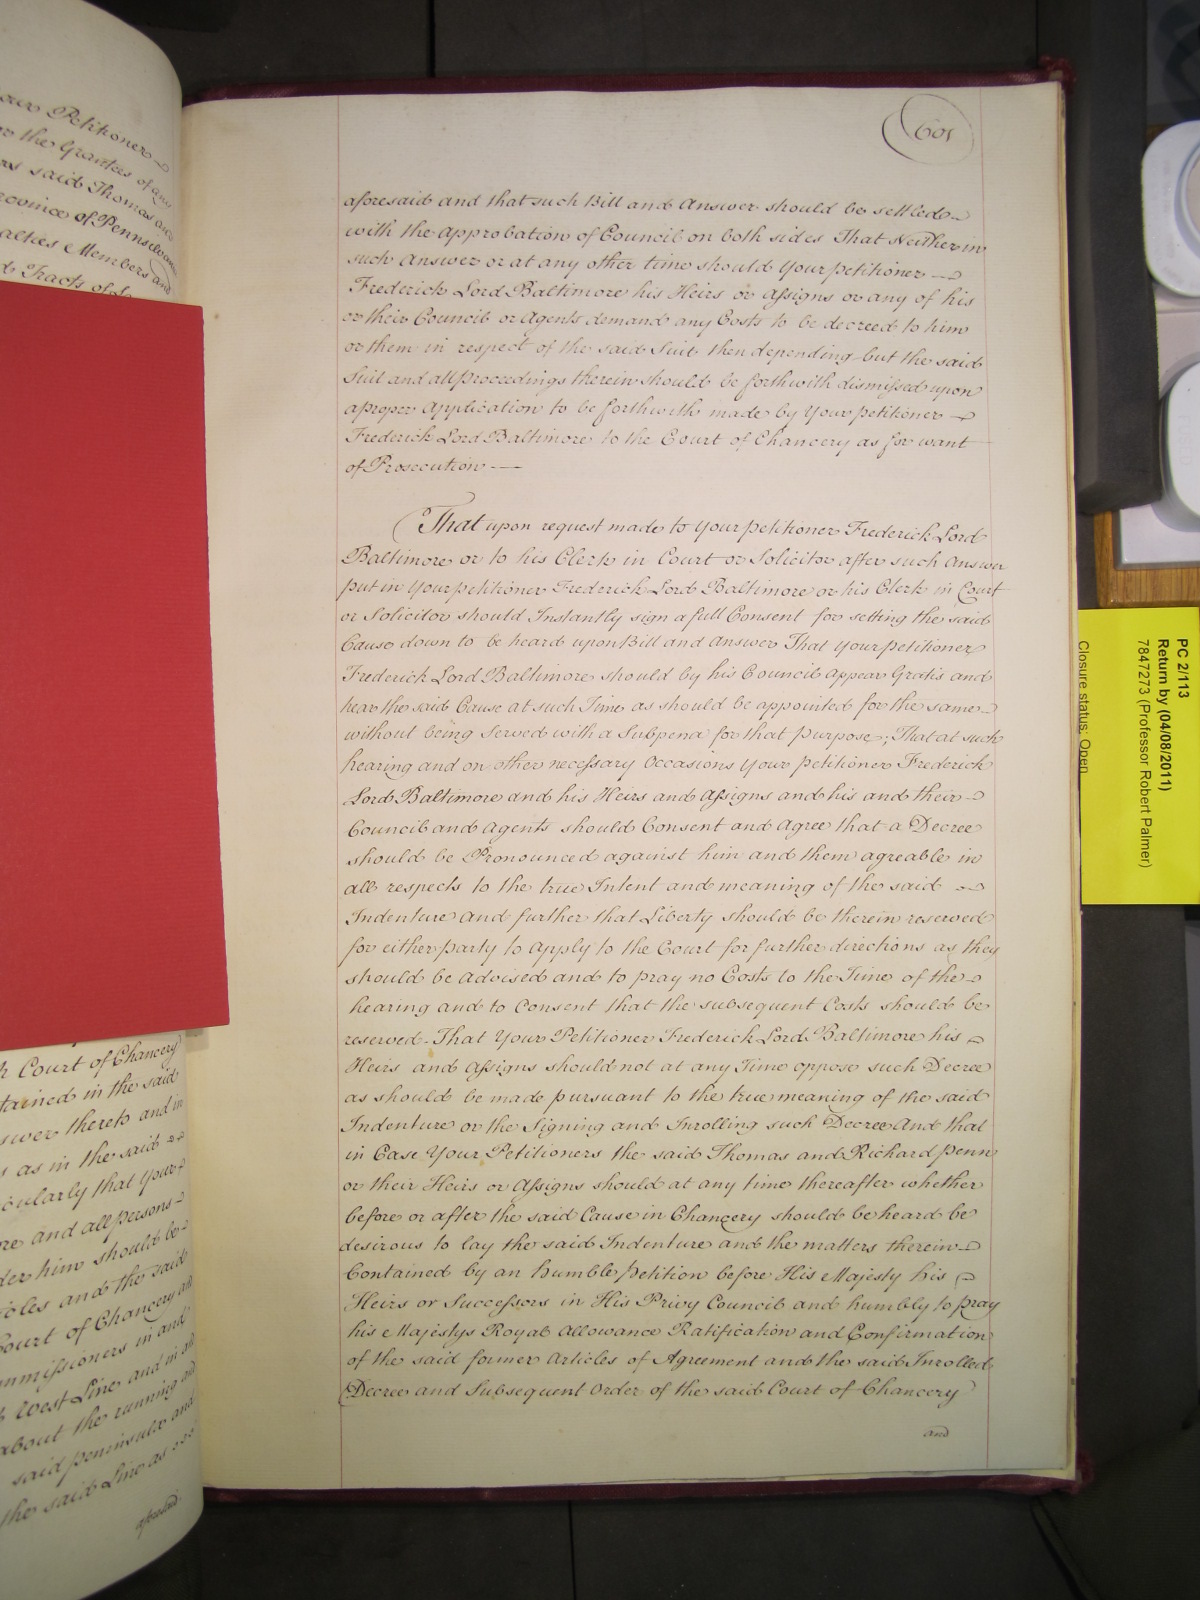 our Petitioner
or the Grantees of any
said Thomas and
rovince of Pennsilvania
alties Members and
d Tracts of
601
aforesaid and that such Bill and Answer should be settled
with the Approbation of Council on both sides That Neither in
such Answer or at any other time should Your petitioner
Frederick Lord Baltimore his Heirs or Assigns or any of his
or their Council or Agents demand any Costs to be decreed to him
or them in respect of the said Suit then depending but the said
Suit and all proceedings therein should be forthwith dismissed upon
a proper Application to be forthwith made by Your petitioner
Frederick Lord Baltimore to the Court of Chancery as for want
of Prosecution
That upon request made to Your petitioner Frederick Lord
Baltimore or to his Clerk in Court or Solicitor after such Answer
put in Your petitioner Frederick Lord Baltimore or his Clerk in Court
or Solicitor should Instantly sign a full Consent for setting the said
Cause down to be heard upon Bill and Answer That Your petitioner
Frederick Lord Baltimore should by his Council appear Gratis and
hear the said Cause at such Time as should be appointed for the same
without being Served with a Subpena for that purpose; That at such
hearing and on other necessary Occasions Your petitioner Frederick
Lord Baltimore and his Heirs and Assigns and his and their
Council and Agents should Consent and Agree that a Decree
should be Pronounced against him and them agreable in
all respects to the true Intent and meaning of the said
Indenture And further that Liberty should be therein reserved
for either party to Apply to the Court for further directions as they
should be Advised and to pray no Costs to the Time of the
hearing and to Consent that the subsequent Costs should be
reserved That Your Petitioner Frederick Lord Baltimore his
Heirs and Assigns should not at any Time oppose such Decree
as should be made pursuant to the true meaning of the said
Indenture or the Signing and Inrolling such Decree And that
in Case Your Petitioners the said Thomas and Richard Penn
or their Heirs or Assigns should at any time thereafter whether
before or after the said Cause in Chancery should be heard be
desirous to lay the said Indenture and the matters therein
Contained by an humble Petition before His Majesty his
Heirs or Successors in His Privy Council and humbly to pray
his Majestys Royal Allowance Ratification and Confirmation
of the said former Articles of Agreement and the said Inrolled
Decree and Subsequent Order of the said Court of Chancery
and
h Court of Chancery
tained in the said
swer thereto and in
s as in the said
icularly that Your
re and all persons
der him should be
icles and the said
Court of Chancery and
mmissioners in and
West Line and in all
about the running
said peninsula and
the said Line as
aforesaid
PC 2/113
Return by (04/08/2011)
7847273 (Professor Robert Palmer)
Closure status: Open